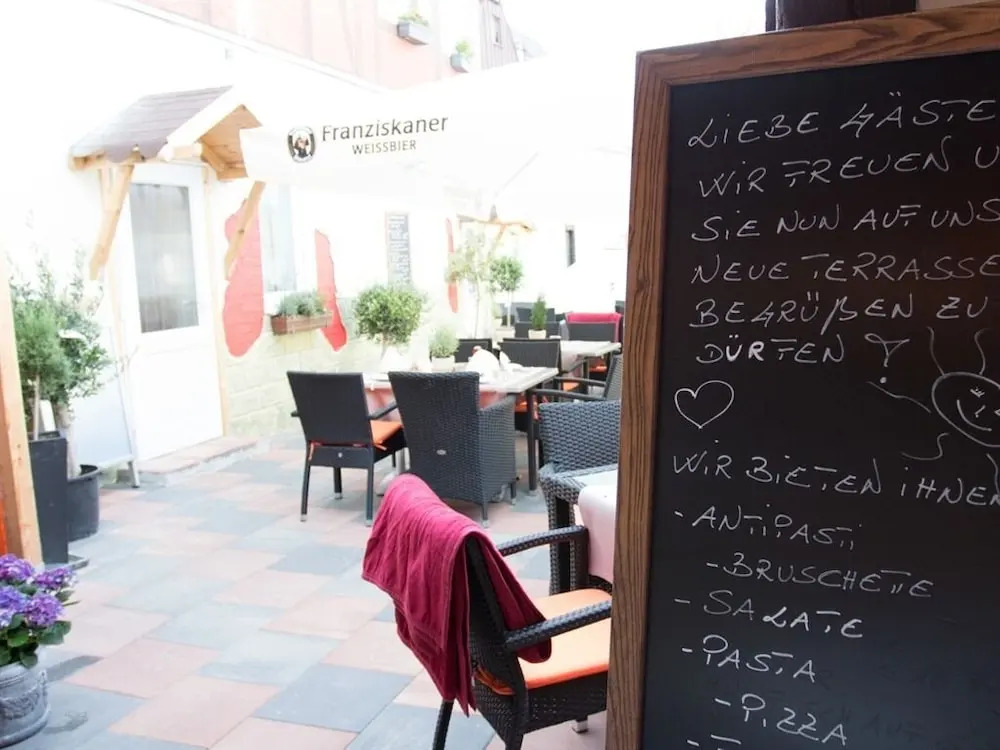 Franziskaner
WEISSBIER
LIEBE GÄSTE
WIR FREUEN U
SIE NUN AUF UNS
NEUE TERRASSE
BEGRÜßEN ZU
DÜRTEN!
WIR BIETEN IHNEN
- ANTIPASTI
- BRUSCHETTE
- SALATE
- PASTA
- PIZZA